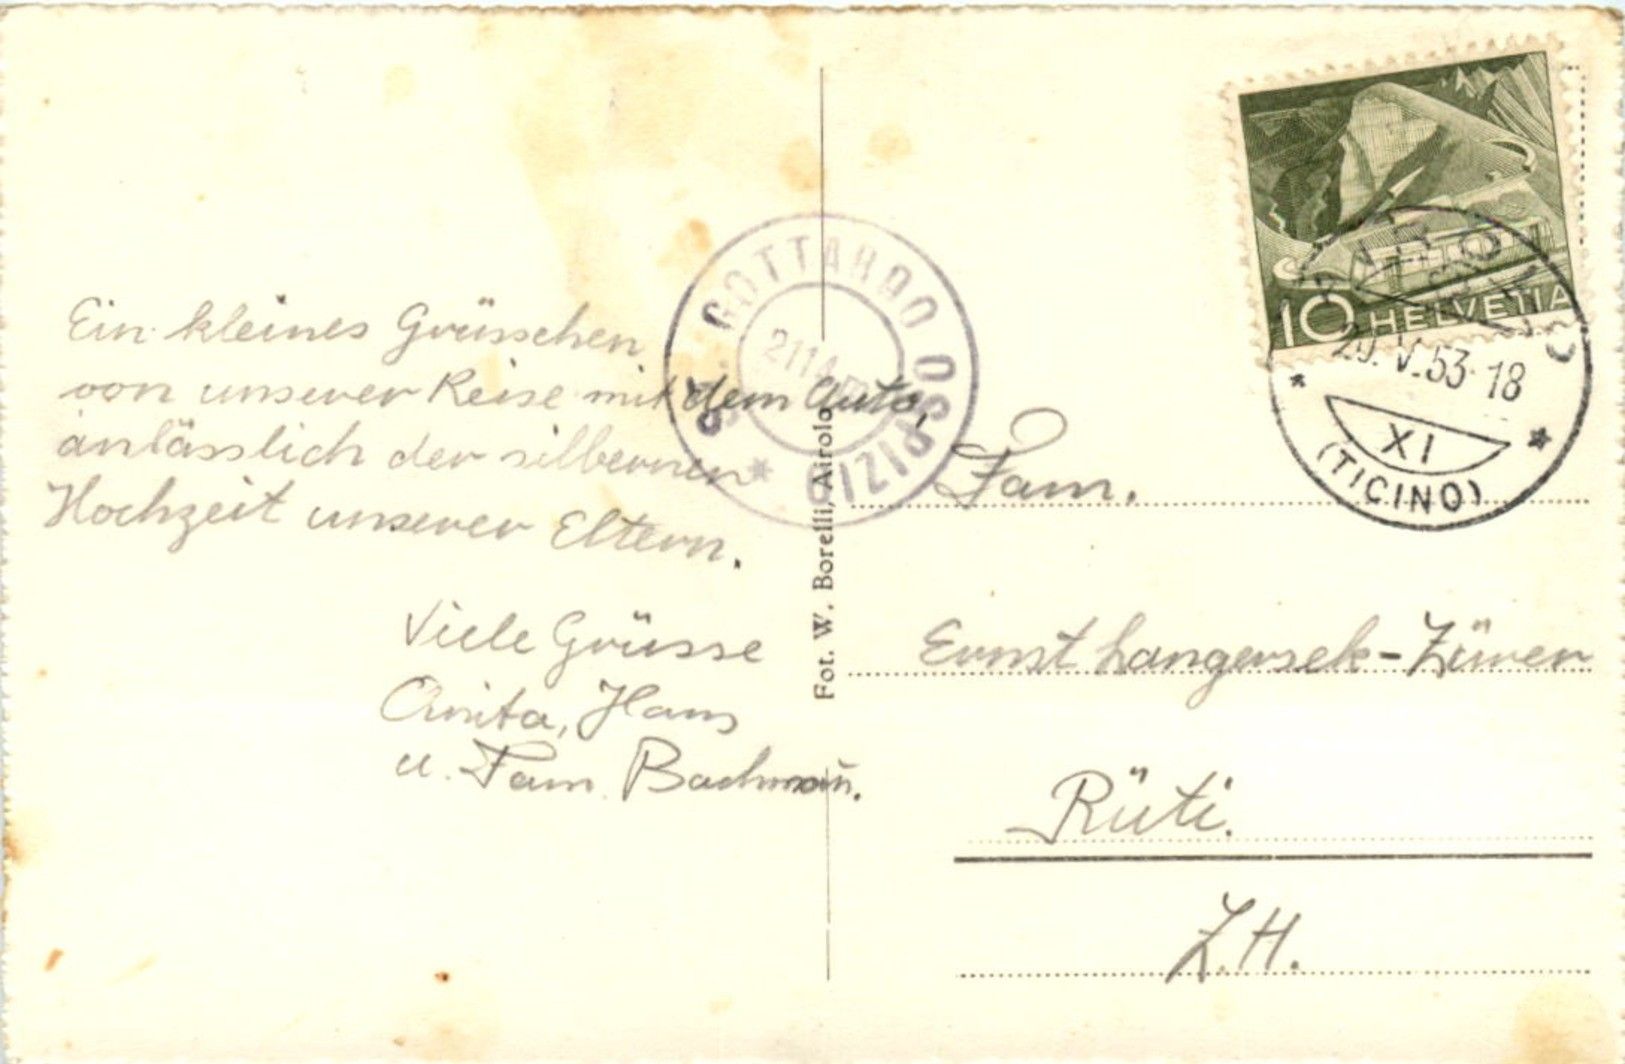 Ein kleines Grüsschen
von unserer Reise mit dem Auto,
anlässlich der silbernen
Hochzeit unserer Eltern.
Viele Grüsse
Anita, Hans
u. Fam. Bachman.
GOTTARDO OSPIZIO
2114
Fot. W. Borelli, Airolo
10 HELVETIA
29.V.53-18
XI
(TICINO)
Fam.
Ernst
Rüti.
Z.H.